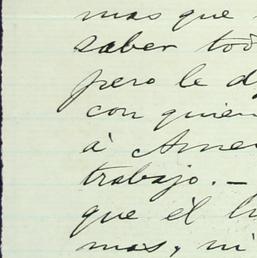 mas que
saber tod
pero le d
con quien
á Ame
trabajo. –
que él h
mas, ni